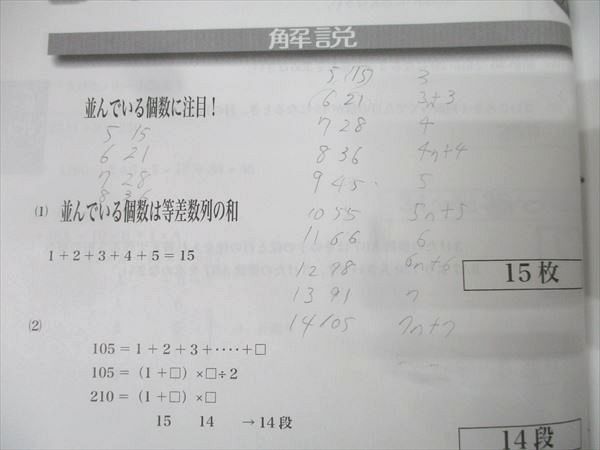 解説
並んでいる個数に注目！
5 15
6 21
7 28
8 36
(1) 並んでいる個数は等差数列の和
1＋2＋3＋4＋5＝15
15枚
(2)
105＝1＋2＋3＋‥‥＋□
105＝(1＋□)×□÷2
210＝(1＋□)×□
15 14 →14段
14段
5 (15) 3
6 21 3n+3
7 28 4
8 36 4n+4
9 45 5
10 55 5n+5
11 66 6
12 78 6n+6
13 91 7
14 105 7n+7